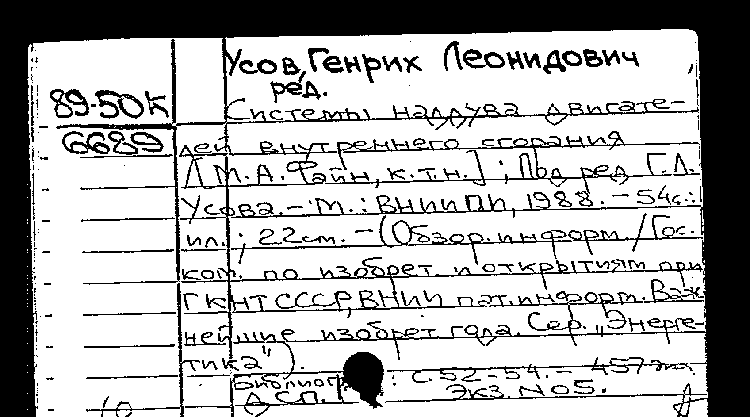 Усов, Генрих Леонидович
ред.
89-50К
6689
Системы наддува двигате-
лей внутреннего сгорания
/[М.А. Файн, к.т.н.]; Под ред. Г.Л.
Усова. – М.: ВНИИПИ, 1988. – 54с.:
ил.; 22см. – (Обзор. информ. / Гос.
ком. по изобрет. и открытиям при
ГКНТ СССР, ВНИИ пат. информ. Важ-
нейшие изобрет. года. Сер. „Энерге-
тика").
: с.52-54. – 457 экз.
ДСП. Экз. N05.